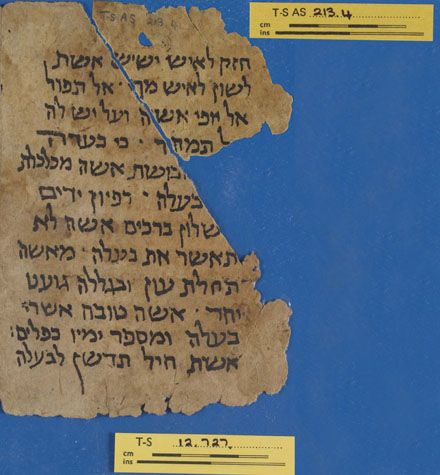 T-S AS 213.4
T-S AS 213.4
cm
ins
חזק לאיש ישיש אשת
לשון לאיש מך · אל תפול
אל יפי אשה ועל יש לה
כי
ובושת אשה מכלכלת
בעלה · רפיון ידים
שלון ברכים אשה לא
תאשר את בעלה · מאשה
תחלת עון ובגללה גוענו
יחד · אשה טובה אשרי
בעלה ומספר ימיו כפלים :
אשת חיל תדשן לבעלה
T-S 12.727
cm
ins